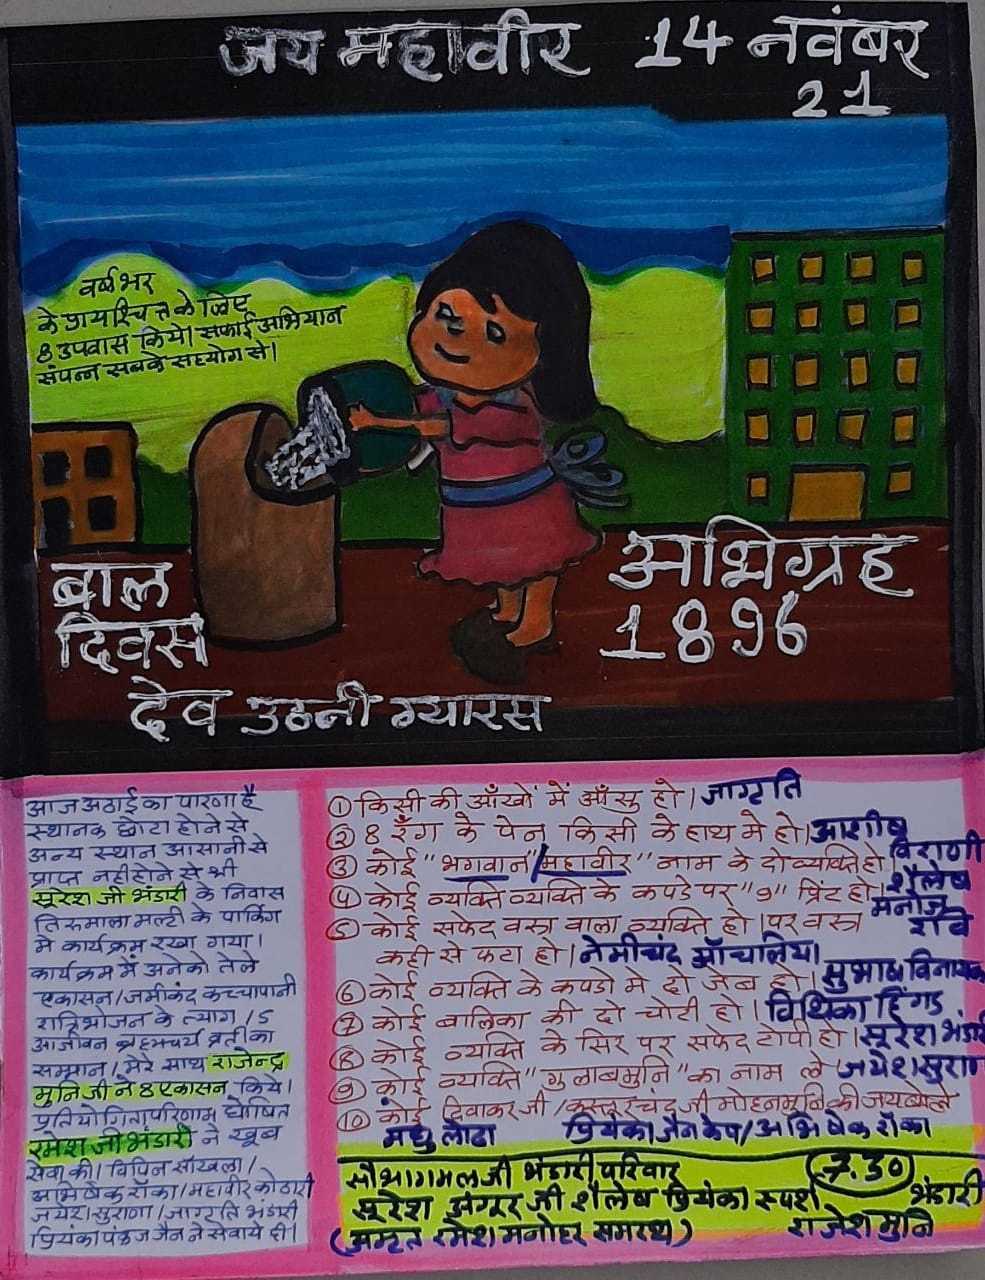 जय महावीर 14 नवंबर
21
वर्षभर
के प्रायश्चित के लिए
8 उपवास किये। सफाई अभियान
संपन्न सबके सहयोग से।
बाल
दिवस
अभिग्रह
1896
देव उठनी ग्यारस
आज अठाई का पारणा है
स्थानक छोटा होने से
अन्य स्थान आसानी से
प्राप्त नही होने से भी
सुरेश जी भंडारी के निवास
तिरुमाला मल्टी के पार्किंग
मे कार्यक्रम रखा गया।
कार्यक्रम में अनेको तेले
एकासन/जमीकंद कच्चापानी
रात्रिभोजन के त्याग /5
आजीवन ब्रह्मचर्य व्रती का
सम्मान, मेरे साथ राजेन्द्र
मुनि जी ने 8 एकासन किये।
प्रतियोगिता परिणाम घोषित
रमेश जी भंडारी ने खूब
सेवा की। विपिन सांखला/
अभिषेक रांका/महावीर कोठारी
जयेश सुराणा/जागृति भंडारी
प्रियंका पंकज जैन ने सेवाये दी।
① किसी की आँखों में आँसु हो। जागृति
② 8 रंग के पेन किसी के हाथ मे हो। आशीष
③ कोई "भगवान"/महावीर" नाम के दो व्यक्ति हो। विराणी
④ कोई व्यक्ति व्यक्ति के कपडे पर "9" प्रिंट हो। शैलेष
⑤ कोई सफेद वस्त्र वाला व्यक्ति हो। पर वस्त्र मनोज रवि
कही से फटा हो। नेमीचंद आँचलिया
⑥ कोई व्यक्ति के कपडो मे दो जेब हो। सुभाष विनायक
⑦ कोई बालिका की दो चोटी हो। विधिका हिंगड
⑧ कोई व्यक्ति के सिर पर सफेद टोपी हो। सुरेश भंडारी
⑨ कोई व्यक्ति "गुलाबमुनि" का नाम ले जयेश सुराणा
⑩ कोई दिवाकर जी/कस्तूरचंद जी मोहनमुनि की जय बोले
मधु लोढा प्रियंका जैन केप/अभिषेक राँका
सौभागमल जी भंडारी परिवार 7.30
सुरेश अंगूर जी शैलेष प्रियंका स्पर्श भंडारी
(अमृत रमेश मनोहर समरथ) राजेश मुनि